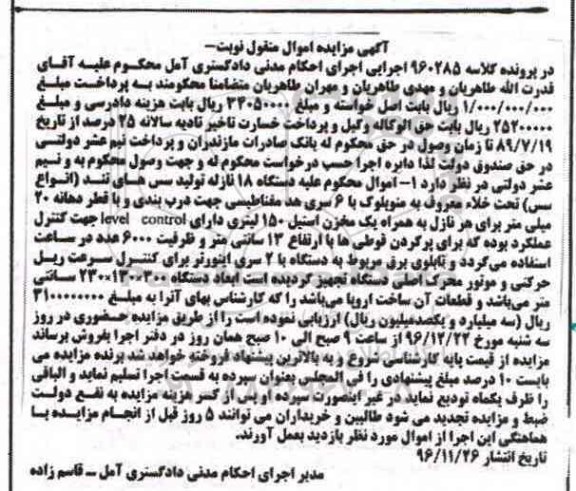 آگهی مزایده اموال منقول نوبت—
در پرونده کلاسه ۹۶۰۲۸۵ اجرایی اجرای احکام مدنی دادگستری آمل محکوم علیه آقای
قدرت الله طاهریان و مهدی طاهریان و مهران طاهریان متضامنا محکومند به پرداخت مبلغ
۱/۰۰۰/۰۰۰/۰۰۰ ریال بابت اصل خواسته و مبلغ ۳۳۰۵۰۰۰۰ ریال بابت هزینه دادرسی و مبلغ
۲۵۲۰۰۰۰۰ ریال بابت حق الوکاله وکیل و پرداخت خسارت تاخیر تادیه سالانه ۲۵ درصد از تاریخ
۸۹/۷/۱۹ تا زمان وصول در حق محکوم له بانک صادرات مازندران و پرداخت نیم عشر دولتی
در حق صندوق دولت لذا دایره اجرا حسب درخواست محکوم له و جهت وصول محکوم به و نیم
عشر دولتی در نظر دارد ۱– اموال محکوم علیه دستگاه ۱۸ نازله تولید سس های تند (انواع
سس) تحت خلاء معروف به منوبلوک با ۶ سری هد مغناطیسی جهت درب بندی و با قطر دهانه ۲۰
میلی متر برای هر نازل به همراه یک مخزن استیل ۱۵۰ لیتری دارای level control جهت کنترل
عملکرد بوده که برای پرکردن قوطی ها با ارتفاع ۱۳ سانتی متر و ظرفیت ۶۰۰۰ عدد در ساعت
استفاده می‌گردد و تابلوی برق مربوط به دستگاه با ۲ سری اینورتر برای کنترل سرعت ریل
حرکتی و موتور محرک اصلی دستگاه تجهیز گردیده است ابعاد دستگاه ۳۰۰×۱۳۰×۲۳۰ سانتی
متر می‌باشد و قطعات آن ساخت اروپا می‌باشد را که کارشناس بهای آنرا به مبلغ ۳۱۰۰۰۰۰۰۰۰
ریال (سه میلیارد و یکصدمیلیون ریال) ارزیابی نموده است را از طریق مزایده حضوری در روز
سه شنبه مورخ ۹۶/۱۲/۲۲ از ساعت ۹ صبح الی ۱۰ صبح همان روز در دفتر اجرا بفروش برساند
مزایده از قیمت پایه کارشناسی شروع و به بالاترین پیشنهاد فروخته خواهد شد برنده مزایده می
بایست ۱۰ درصد مبلغ پیشنهادی را فی المجلس بعنوان سپرده به قسمت اجرا تسلیم نماید و الباقی
را ظرف یکماه تودیع نماید در غیر اینصورت سپرده او پس از کسر هزینه مزایده به نفع دولت
ضبط و مزایده تجدید می شود طالبین و خریداران می توانند ۵ روز قبل از انجام مزایده با
هماهنگی این اجرا از اموال مورد نظر بازدید بعمل آورند.
تاریخ انتشار ۹۶/۱۱/۲۶
مدیر اجرای احکام مدنی دادگستری آمل – قاسم زاده